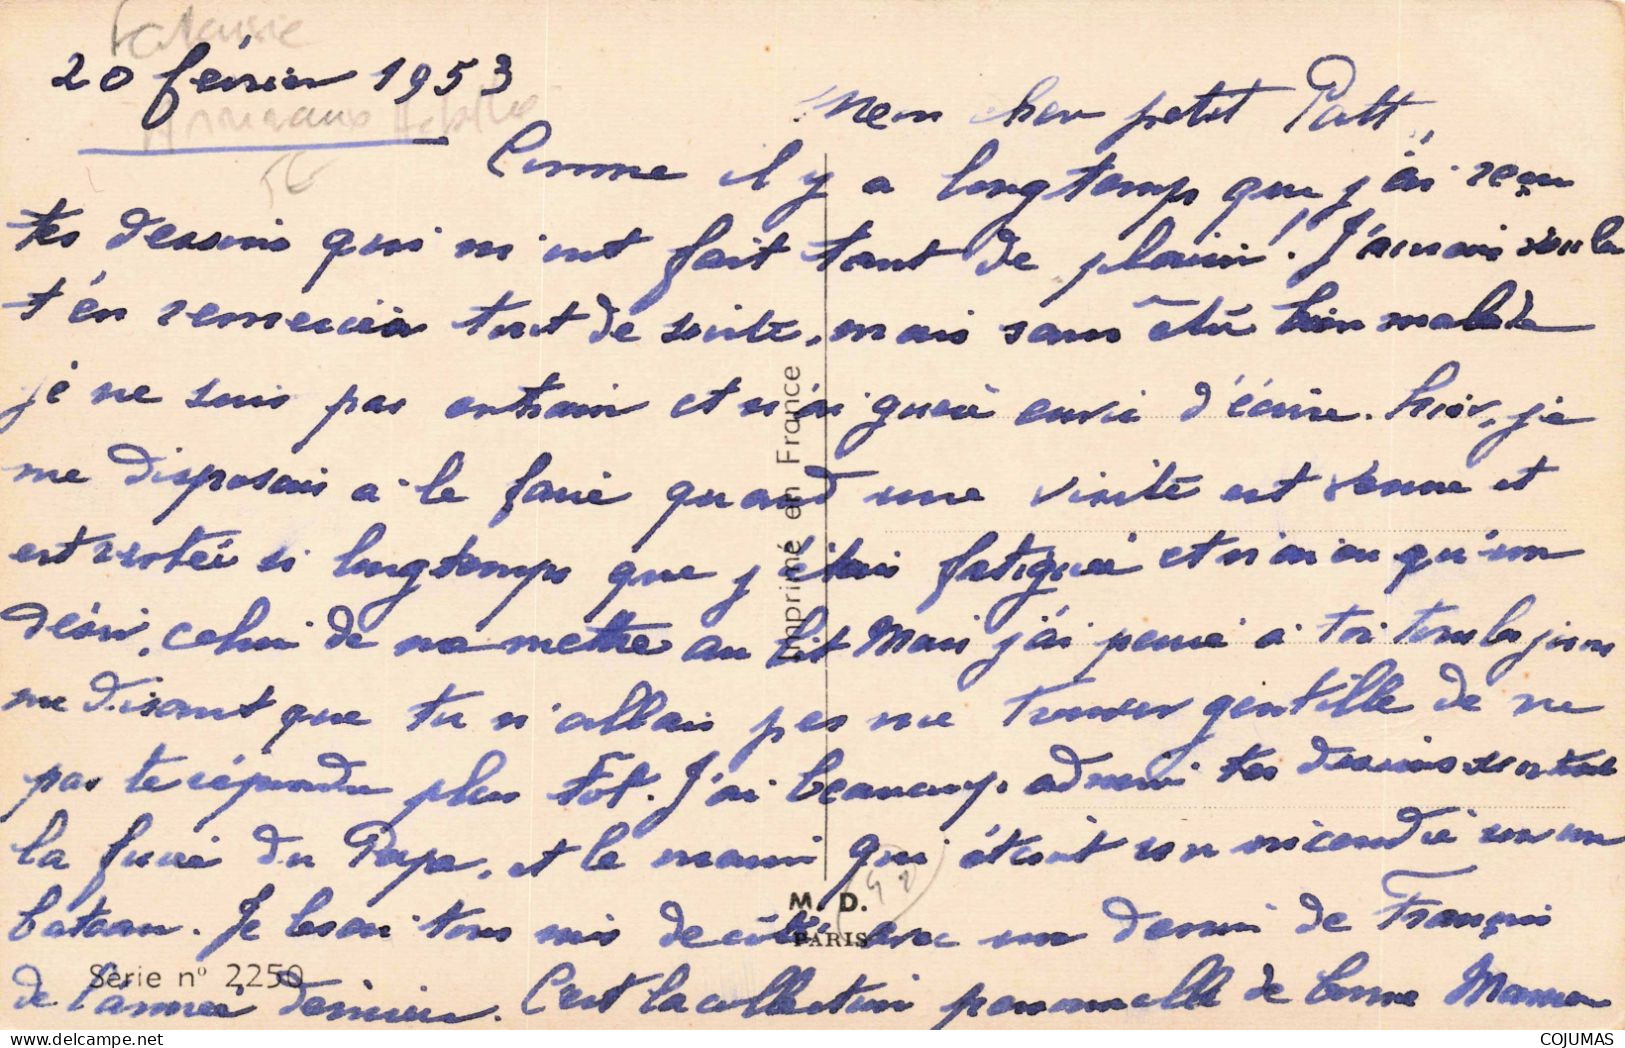 Fantaisie
20 février 1953
Animaux
5€
Mon cher petit Patt,
Comme il y a longtemps que j'ai reçu
tes dessins qui m'ont fait tant de plaisir! J'aurais voulu
t'en remercier tout de suite, mais sans être bien malade
je ne suis pas entrain et n'ai guère envie d'écrire. hier, je
me disposais à le faire quand une visite est venue et
est restée si longtemps que j'étais fatiguée et n'ai eu qu'un
désir, celui de me mettre au lit Mais j'ai pensé à toi tous les jours
me disant que tu n'allais pas me trouver gentille de ne
pas te répondre plus tôt. J'ai beaucoup admiré tes dessins
la furie du Pape, et le marin qui éteint un incendie sur un
bateau. Je les ai tous mis de côté avec un dessin de François
de l'année dernière. C'est la collection personnelle de bonne Maman
Imprimé en France
M. D.
PARIS
Série n° 2250
COJUMAS